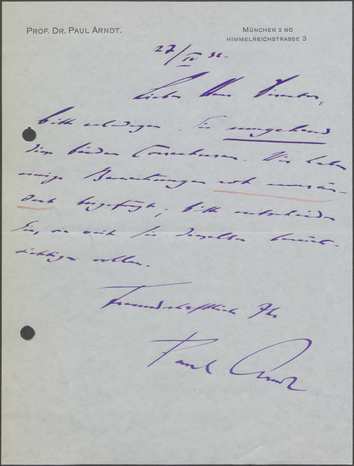 PROF. DR. PAUL ARNDT.
MÜNCHEN 2 NO
HIMMELREICHSTRASSE 3
27/IV 36.
Lieber Herr
bitte erledigen Sie umgehend
diese beiden Correkturen. Wir haben
einige Bemerkungen
beigefügt; bitte entscheiden
Sie, wie weit Sie dieselben berück-
sichtigen wollen.
Freundschaftlich Ihr
Paul Arndt